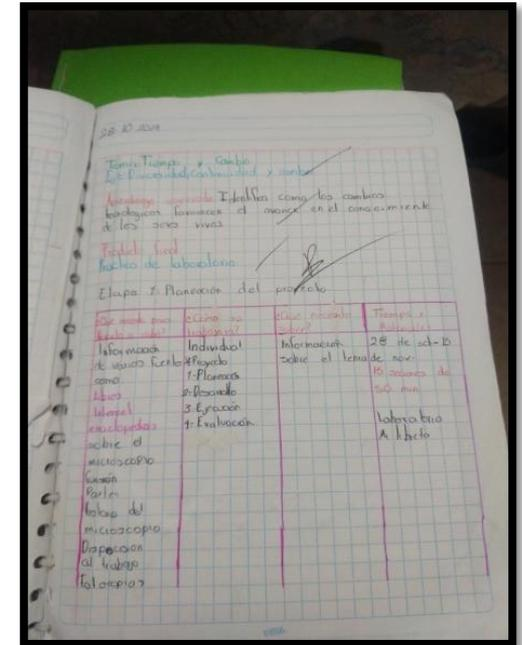 28 10 2019
Tema: Tiempo y Cambio
Eje: Diversidad, Continuidad y cambio
Aprendizaje esperado Identifica como los cambios
tecnologicos favorecen el avance en el conocimiento
de los seres vivos
Producto final
Practica de laboratorio
Etapa 1: Planeación del proyecto
¿Cómo se trabajará?
¿Qué necesito saber?
Tiempo y Materiales
Información
de varias fuentes
como
Libros
Internet
enciclopedias
sobre el
microscopio
Función
Partes
del
microscopio
Disposición
al trabajo
Fotocopias
Individual
Proyecto
1-Planeación
2-Desarrollo
3.
4-Evaluación
Información
sobre el tema
28 de oct-15
de nov.
15 sesiones de
50 min
Laboratorio